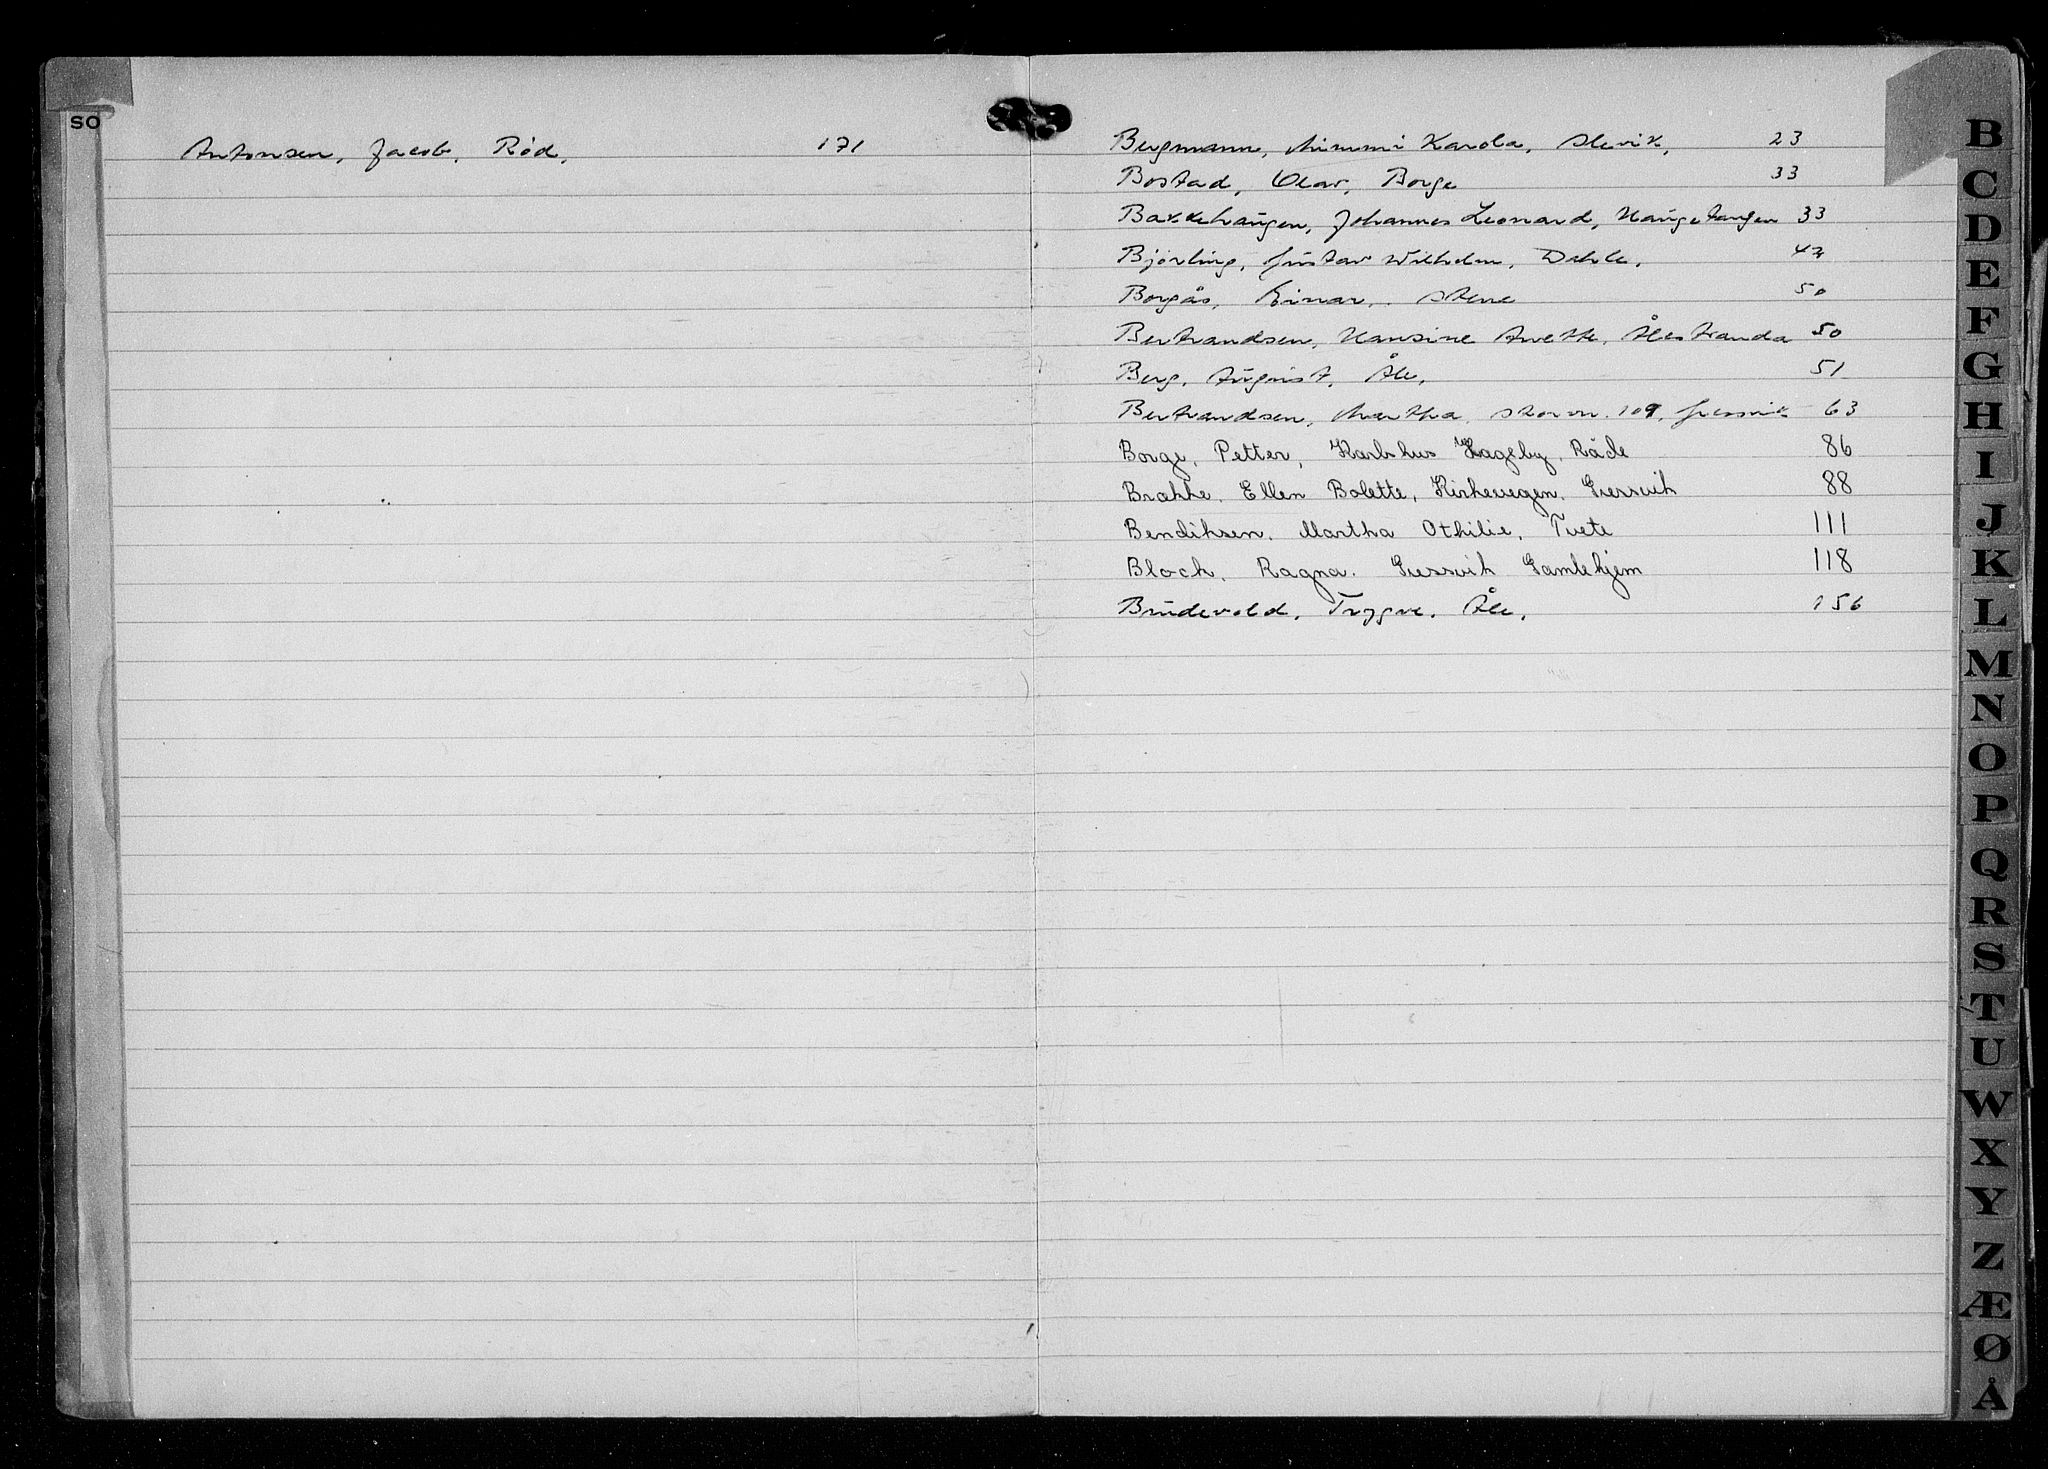 SO
Antonsen, Jacob, Rød, 171
Bergmann, Mimmi Karola, Slevik, 23
Bostad, Olav, Borge 33
Bakkehaugen, Johannes Leonard, Haugetangen 33
Bjørling, Gustav Wilhelm, Dahle, 42
Borgås, Einar, Stene 50
Bertrandsen, Hansine Anette, Ålestranda 50
Berg, August, Åle, 51
Bertrandsen, Martha, Storvn. 109, Gressvik 63
Borge, Petter, Karlshus Hageby, Råde 86
Brække, Ellen Bolette, Kirkevegen, Gressvik 88
Bendiksen, Martha Othilie, Tvete 111
Block, Ragna, Gressvik Gamlehjem 118
Brudevold, Trygve, Åle, 156
B
C
D
E
F
G
H
I
J
K
L
M
N
O
P
Q
R
S
T
U
W
X
Y
Z
Æ
Ø
Å